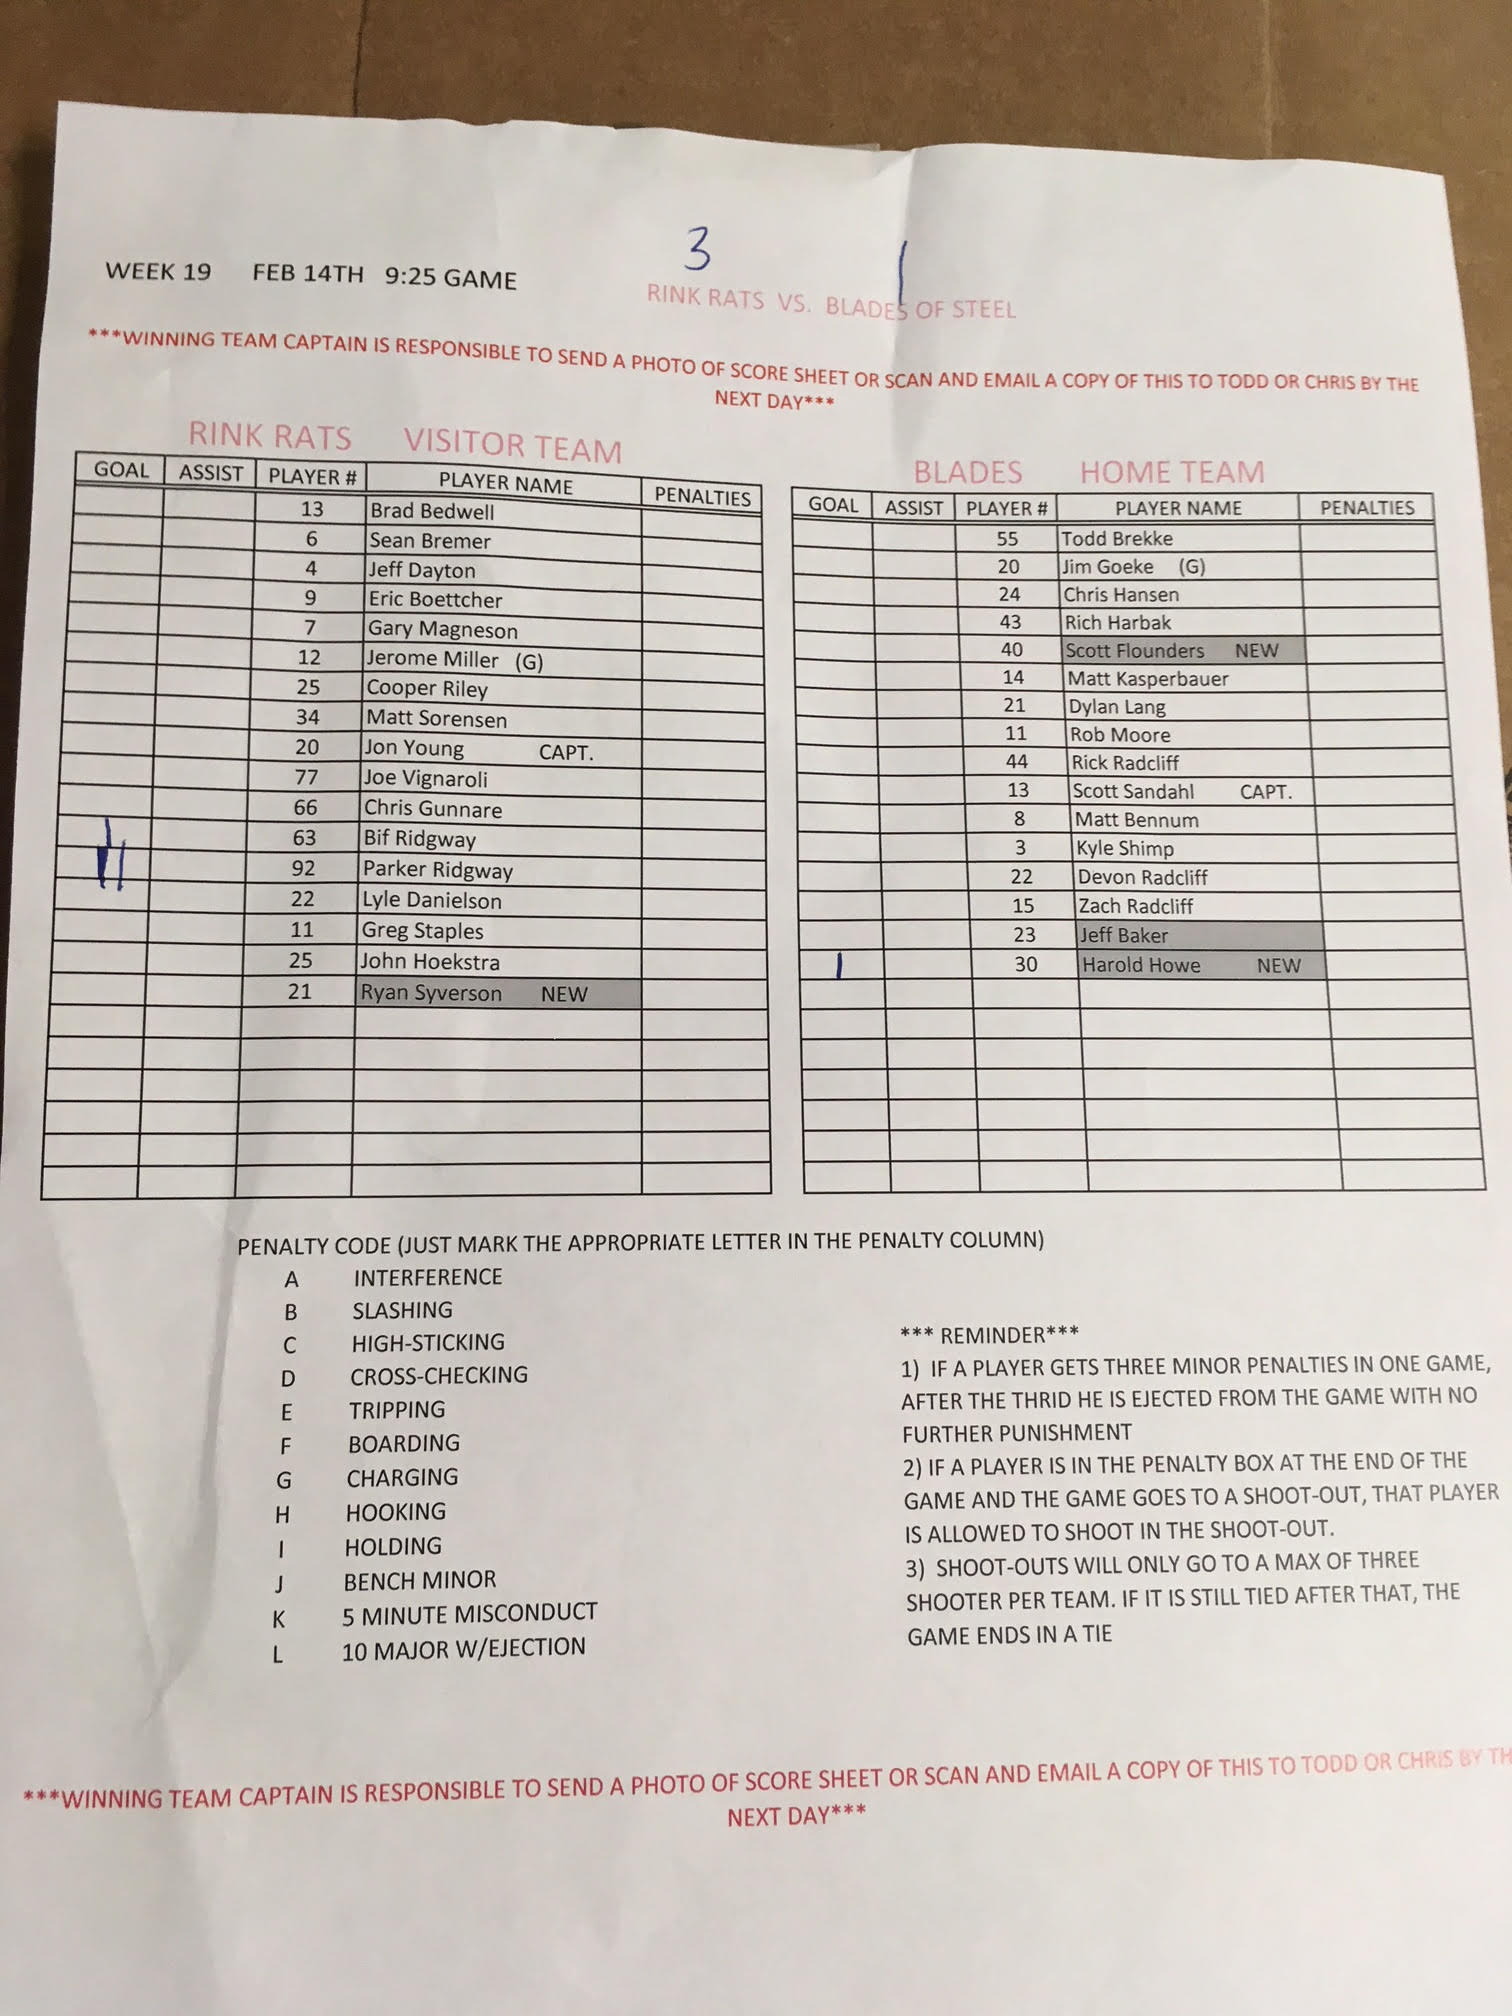 3 1
WEEK 19 FEB 14TH 9:25 GAME
RINK RATS VS. BLADES OF STEEL
***WINNING TEAM CAPTAIN IS RESPONSIBLE TO SEND A PHOTO OF SCORE SHEET OR SCAN AND EMAIL A COPY OF THIS TO TODD OR CHRIS BY THE
NEXT DAY***
RINK RATS VISITOR TEAM
GOAL ASSIST PLAYER # PLAYER NAME PENALTIES
13 Brad Bedwell
6 Sean Bremer
4 Jeff Dayton
9 Eric Boettcher
7 Gary Magneson
12 Jerome Miller (G)
25 Cooper Riley
34 Matt Sorensen
20 Jon Young CAPT.
77 Joe Vignaroli
66 Chris Gunnare
63 Bif Ridgway
92 Parker Ridgway
22 Lyle Danielson
11 Greg Staples
25 John Hoekstra
21 Ryan Syverson NEW
BLADES HOME TEAM
GOAL ASSIST PLAYER # PLAYER NAME PENALTIES
55 Todd Brekke
20 Jim Goeke (G)
24 Chris Hansen
43 Rich Harbak
40 Scott Flounders NEW
14 Matt Kasperbauer
21 Dylan Lang
11 Rob Moore
44 Rick Radcliff
13 Scott Sandahl CAPT.
8 Matt Bennum
3 Kyle Shimp
22 Devon Radcliff
15 Zach Radcliff
23 Jeff Baker
1 30 Harold Howe NEW
PENALTY CODE (JUST MARK THE APPROPRIATE LETTER IN THE PENALTY COLUMN)
A INTERFERENCE
B SLASHING
C HIGH-STICKING
D CROSS-CHECKING
E TRIPPING
F BOARDING
G CHARGING
H HOOKING
I HOLDING
J BENCH MINOR
K 5 MINUTE MISCONDUCT
L 10 MAJOR W/EJECTION
*** REMINDER***
1) IF A PLAYER GETS THREE MINOR PENALTIES IN ONE GAME,
AFTER THE THRID HE IS EJECTED FROM THE GAME WITH NO
FURTHER PUNISHMENT
2) IF A PLAYER IS IN THE PENALTY BOX AT THE END OF THE
GAME AND THE GAME GOES TO A SHOOT-OUT, THAT PLAYER
IS ALLOWED TO SHOOT IN THE SHOOT-OUT.
3) SHOOT-OUTS WILL ONLY GO TO A MAX OF THREE
SHOOTER PER TEAM. IF IT IS STILL TIED AFTER THAT, THE
GAME ENDS IN A TIE
***WINNING TEAM CAPTAIN IS RESPONSIBLE TO SEND A PHOTO OF SCORE SHEET OR SCAN AND EMAIL A COPY OF THIS TO TODD OR CHRIS BY TH
NEXT DAY***